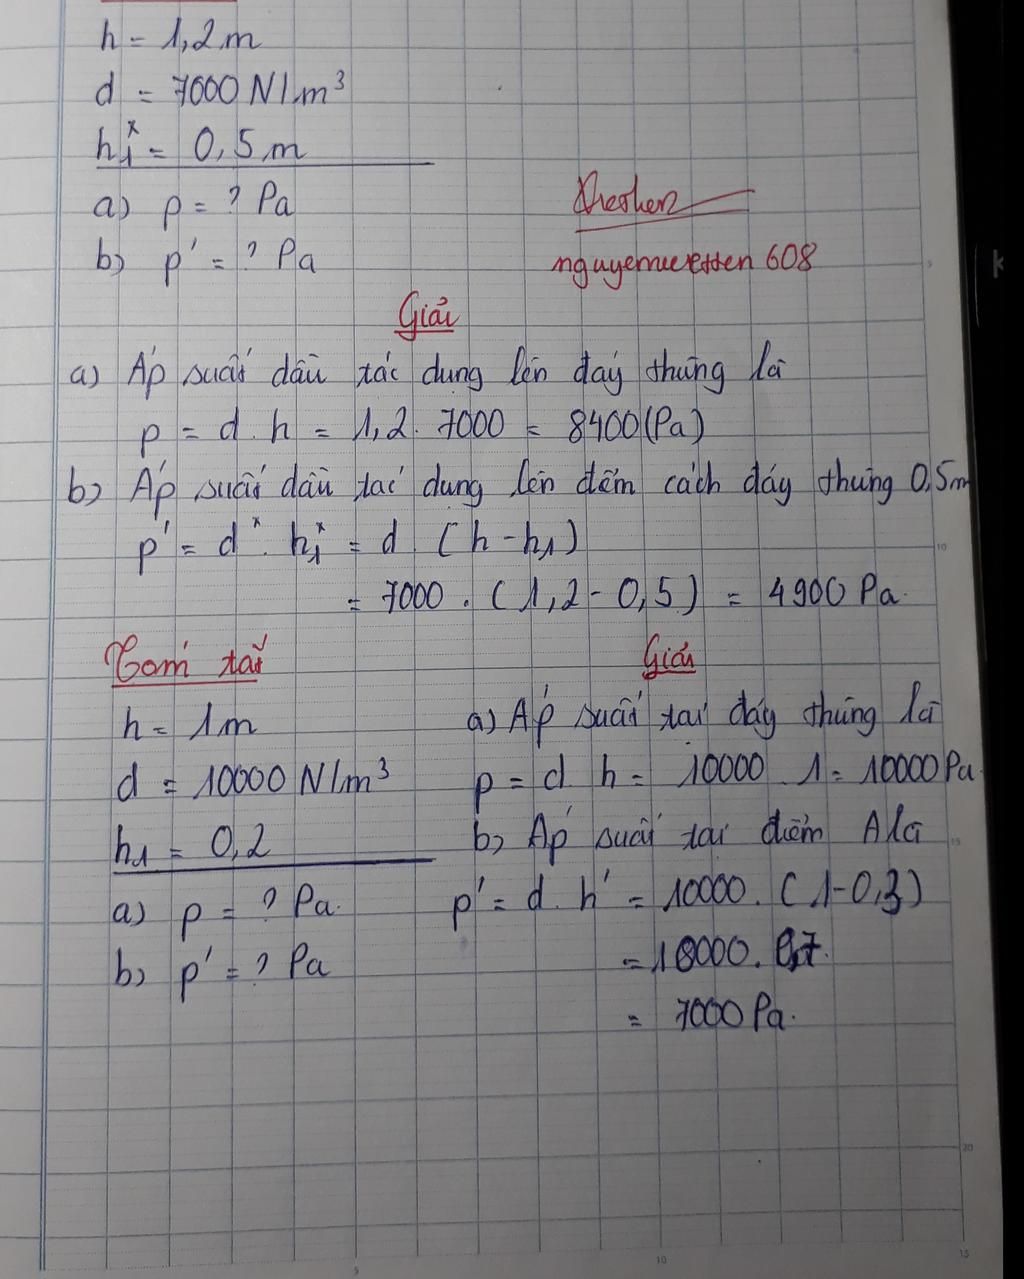 h = 1,2m
d = 7000 N/m³
h₁ˣ = 0,5m
a) p = ? Pa
b) p' = ? Pa
608
Giải
a) Áp suất dầu tác dụng lên đáy thùng là
p = d . h = 1,2 . 7000 = 8400(Pa)
b) Áp suất dầu tác dụng lên điểm cách đáy thùng 0,5m
p' = dˣ . h₁ˣ = d (h - h₁)
= 7000 . (1,2 - 0,5) = 4900 Pa.
Tóm tắt
h = 1m
d = 10000 N/m³
h₁ = 0,2
a) p = ? Pa.
b) p' = ? Pa
Giải
a) Áp suất tại đáy thùng là
p = d h = 10000 . 1 = 10000 Pa.
b) Áp suất tại điểm A là
p' = d . h' = 10000 . (1 - 0,3)
= 10000 . 0,7.
= 7000 Pa.